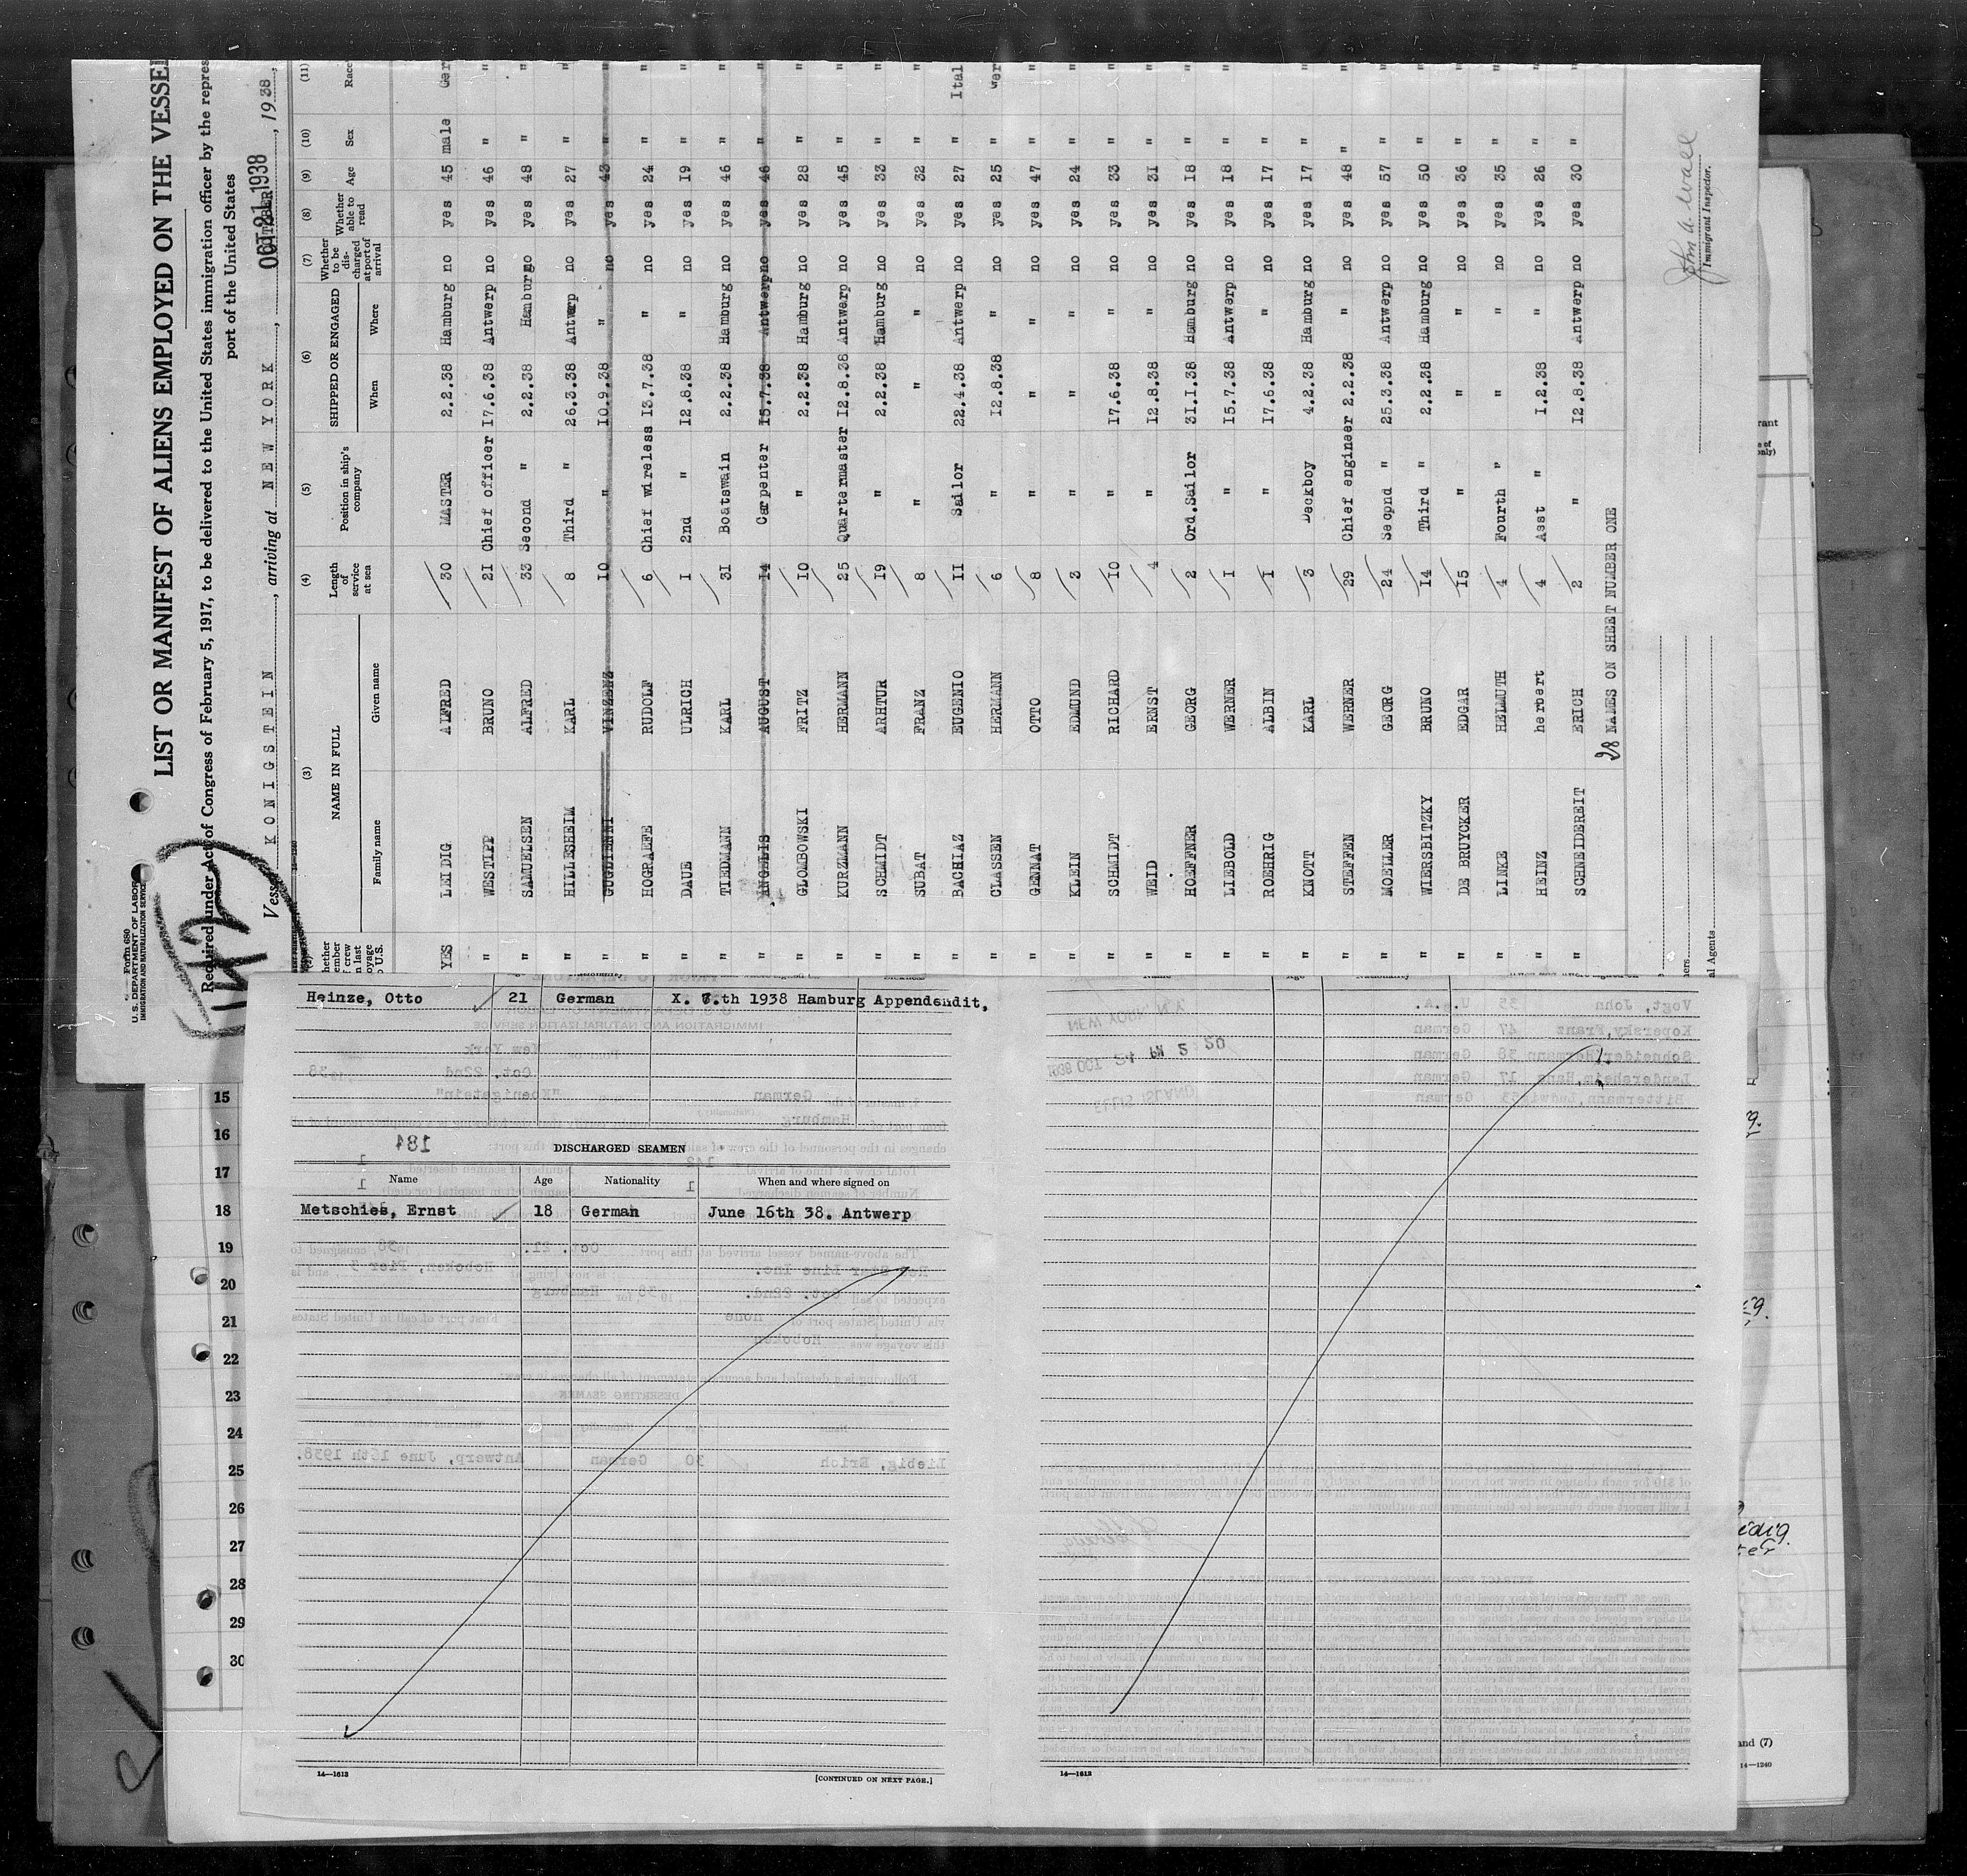 Form 680
U.S. DEPARTMENT OF LABOR
IMMIGRATION AND NATURALIZATION SERVICE
LIST OR MANIFEST OF ALIENS EMPLOYED ON THE VESSEL
Required under Act of Congress of February 5, 1917, to be delivered to the United States immigration officer by the repres
port of the United States
Vessel KONIGSTEIN, arriving at NEW YORK, OCT 21 1938, 1938,
14-1240
(3) (4) (5) (6) (7) (8) (9) (10) (11)
NAME IN FULL Length of service at sea Position in ship's company SHIPPED OR ENGAGED Whether to be discharged at port of arrival Whether able to read Age Sex Race
Family name Given name When Where
YES LEIDIG ALFRED 30 MASTER 2.2.38 Hamburg no yes 45 male Ger
" WESTIPP BRUNO 21 Chief officer 17.6.38 Antwerp no yes 46 " "
" SAMUELSEN ALFRED 33 Second " 2.2.38 Hamburg no yes 48 " "
" HILLESHEIM KARL 8 Third " 26.3.38 Antwerp no yes 27 " "
" VINZENZ 10 " 10.9.38 " no yes 43 " "
" HOGRAEFE RUDOLF 6 Chief wireless 13.7.38 " no yes 24 " "
" DAUE ULRICH 1 2nd " 12.8.38 " no yes 19 " "
" TIEDMANN KARL 31 Boatswain 2.2.38 Hamburg no yes 46 " "
" ANGELIS AUGUST 14 Carpenter 15.7.38 Antwerp no yes 46 " "
" GLOMBOWSKI FRITZ 10 " 2.2.38 Hamburg no yes 28 " "
" KURZMANN HERMANN 25 Quartermaster 12.8.38 Antwerp no yes 45 " "
" SCHMIDT ARHTUR 19 " 2.2.38 Hamburg no yes 33 " "
" SUBAT FRANZ 8 " " " no yes 32 " "
" BACHIAZ EUGENIO 11 Sailor 22.4.38 Antwerp no yes 27 " Ital
" CLASSEN HERMANN 6 " 12.8.38 " no yes 25 " Ger
" GENNAT OTTO 8 " " " no yes 47 " "
" KLEIN EDMUND 3 " " " no yes 24 " "
" SCHMIDT RICHARD 10 " 17.6.38 " no yes 33 " "
" WEID ERNST 4 " 12.8.38 " no yes 31 " "
" HOEFFNER GEORG 2 Ord.Sailor 31.1.38 Hamburg no yes 18 " "
" LIEBOLD WERNER 1 " 15.7.38 Antwerp no yes 18 " "
" ROEHRIG ALBIN 1 " 17.6.38 " no yes 17 " "
" KNOTT KARL 3 Deckboy 4.2.38 Hamburg no yes 17 " "
" STEFFEN WERNER 29 Chief engineer 2.2.38 " no yes 48 " "
" MOELLER GEORG 24 Second " 25.3.38 Antwerp no yes 57 " "
" WIERSBITZKY BRUNO 14 Third " 2.2.38 Hamburg no yes 50 " "
" DE BRUYCKER EDGAR 15 " " " no yes 36 " "
" LINKE HELMUTH 4 Fourth " " " no yes 35 " "
" HEINZ herbert 4 Asst " 1.2.38 " no yes 26 " "
" SCHNEIDEREIT ERICH 2 " 12.8.38 Antwerp no yes 30 " "
28 NAMES ON SHEET NUMBER ONE
John A. Wall
Immigrant Inspector.
Heinze, Otto 21 German X. 8.th 1938 Hamburg Appendendit,
DISCHARGED SEAMEN
Name Age Nationality When and where signed on
Metschies, Ernst 18 German June 16th 38. Antwerp
14—1613
[CONTINUED ON NEXT PAGE.]
14—1613
15
16
17
18
19
20
21
22
23
24
25
26
27
28
29
30
and (7)
14—1240